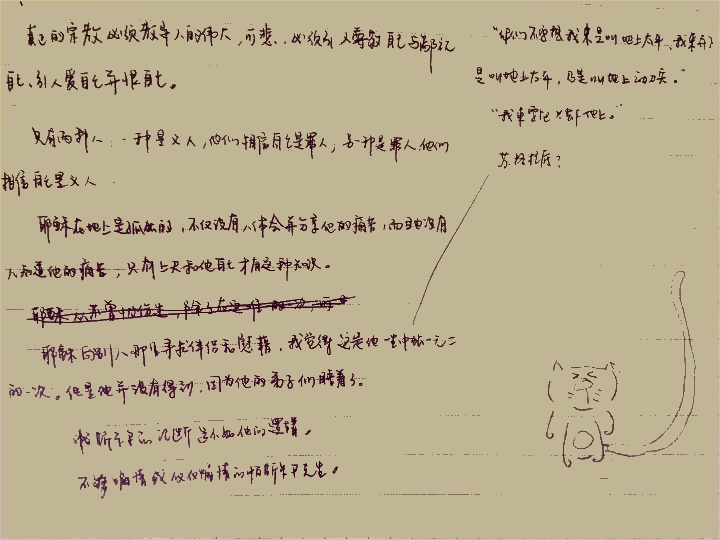 真正的宗教必须教导人的伟大、可悲、必须引人尊敬自己与鄙视
自己、引人爱自己并恨自己。
只有两种人：一种是义人，他们相信自己是罪人；另一种是罪人，他们
相信自己是义人
耶稣在地上是孤独的，不仅没有人体会并分享他的痛苦，而且也没有
人知道他的痛苦；只有上天和他自己才有这种知识。
耶稣从不曾
耶稣向别人那里寻求伴侣和慰藉，我觉得这是他一生中独一无二
的一次。但是他并没有得到，因为他的弟子们睡着了。
帕斯卡尔的论断远不如他的逻辑。
不够煽情或仅仅煽情的帕斯卡尔先生。
“你们不要想我来是叫地上太平，我来并不
是叫地上太平，乃是叫地上动刀兵。”
“我来要把火丢在地上。”
苏格拉底？